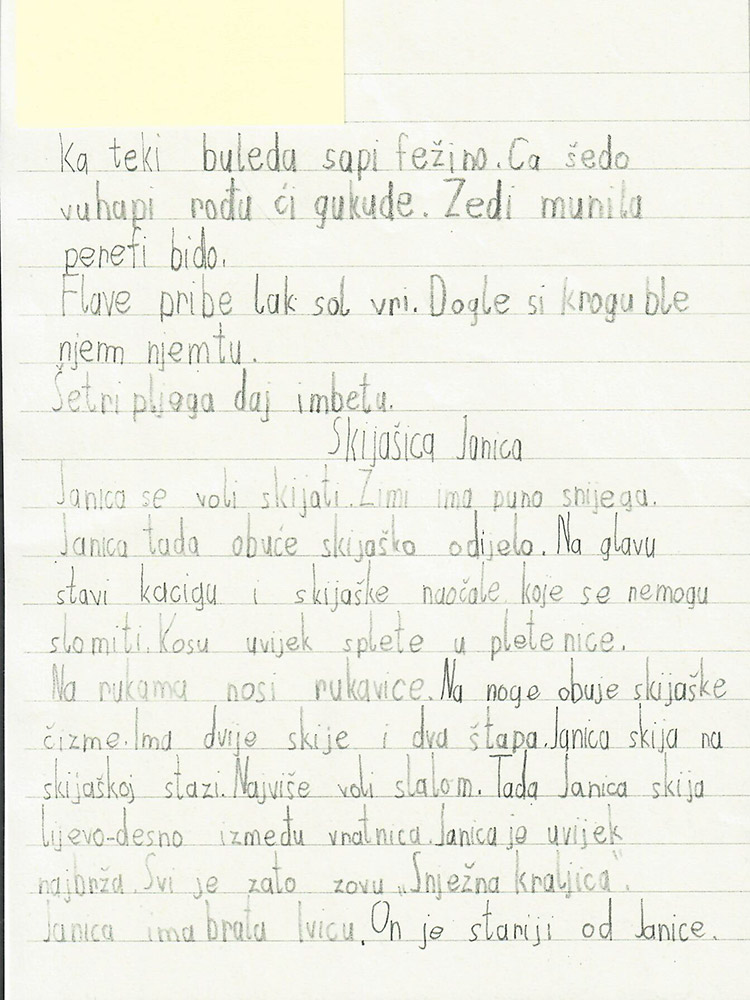 Ka teki buleda sapi fežino. Ca šedo
vuhapi rođu ći gukude. Zedi munila
penefi bido.
Flave pribe lak sol vri. Dogle si krogu ble
njem njemtu.
Šetri pljoga daj imbetu.
Skijašica Janica
Janica se voli skijati. Zimi ima puno snijega.
Janica tada obuće skijaško odijelo. Na glavu
stavi kacigu i skijaške naočale koje se nemogu
slomiti. Kosu uvijek splete u pletenice.
Na rukama nosi rukavice. Na noge obuje skijaške
čizme. Ima dvije skije i dva štapa. Janica skija na
skijaškoj stazi. Najviše voli slalom. Tada Janica skija
lijevo-desno između vratnica. Janica je uvijek
najbrža. Svi je zato zovu „Snježna kraljica".
Janica ima brata Ivicu. On je stariji od Janice.